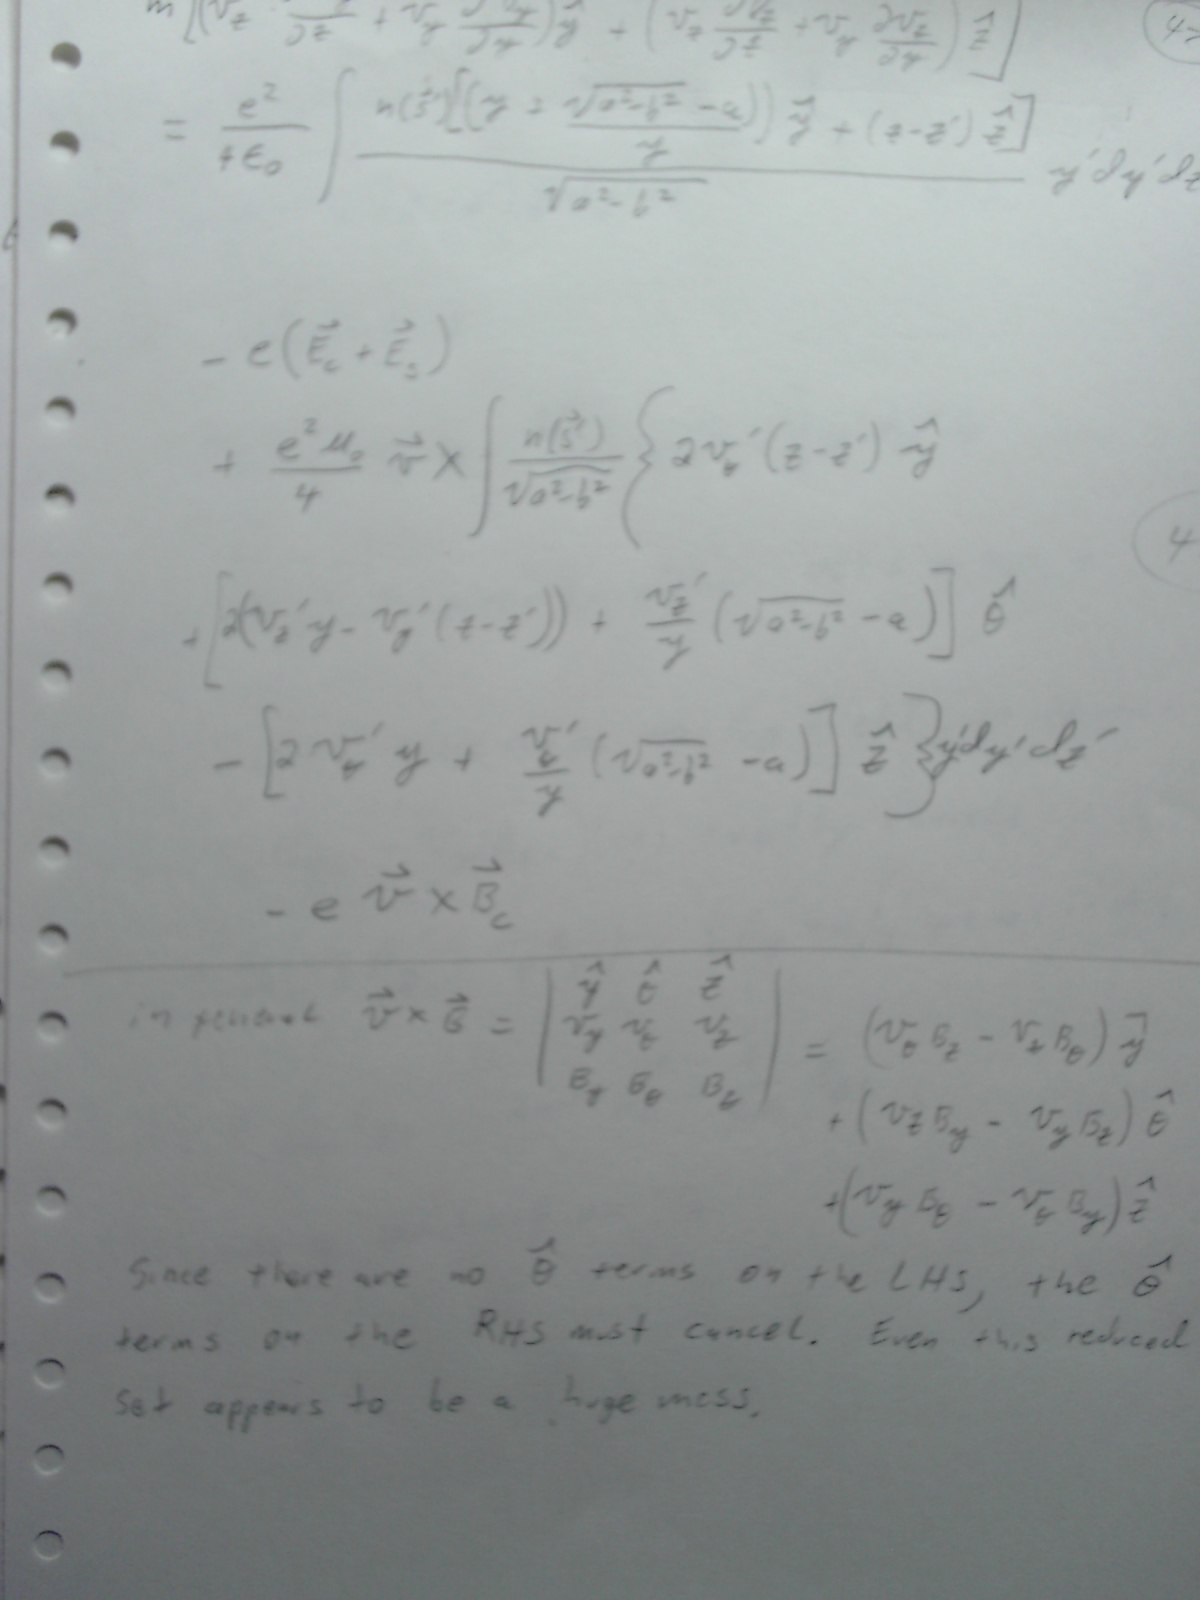 m[(v_z ∂v_y/∂z + v_y ∂v_y/∂y) ŷ + (v_z ∂v_z/∂z + v_y ∂v_z/∂y) ẑ]
= e²/4ε₀ ∫ n(s⃗')[(y + (√(a²-b²) - a)/y) ŷ + (z-z') ẑ] / √(a²-b²) y'dy'dz
- e(E⃗_c + E⃗_s)
+ e²μ₀/4 v⃗ × ∫ n(s⃗')/√(a²-b²) { 2v_θ'(z-z') ŷ
4
+ [2(v_z'y - v_y'(z-z')) + v_z'/y (√(a²-b²) - a)] θ̂
- [2v_θ' y + v_θ'/y (√(a²-b²) - a)] ẑ } y'dy'dz'
- e v⃗ × B⃗_c
in general v⃗ × B⃗ = | ŷ θ̂ ẑ | v_y v_θ v_z | B_y B_θ B_z | = (v_θ B_z - v_z B_θ) ŷ
+ (v_z B_y - v_y B_z) θ̂
+ (v_y B_θ - v_θ B_y) ẑ
Since there are no θ̂ terms on the LHS, the θ̂
terms on the RHS must cancel. Even this reduced
set appears to be a huge mess.